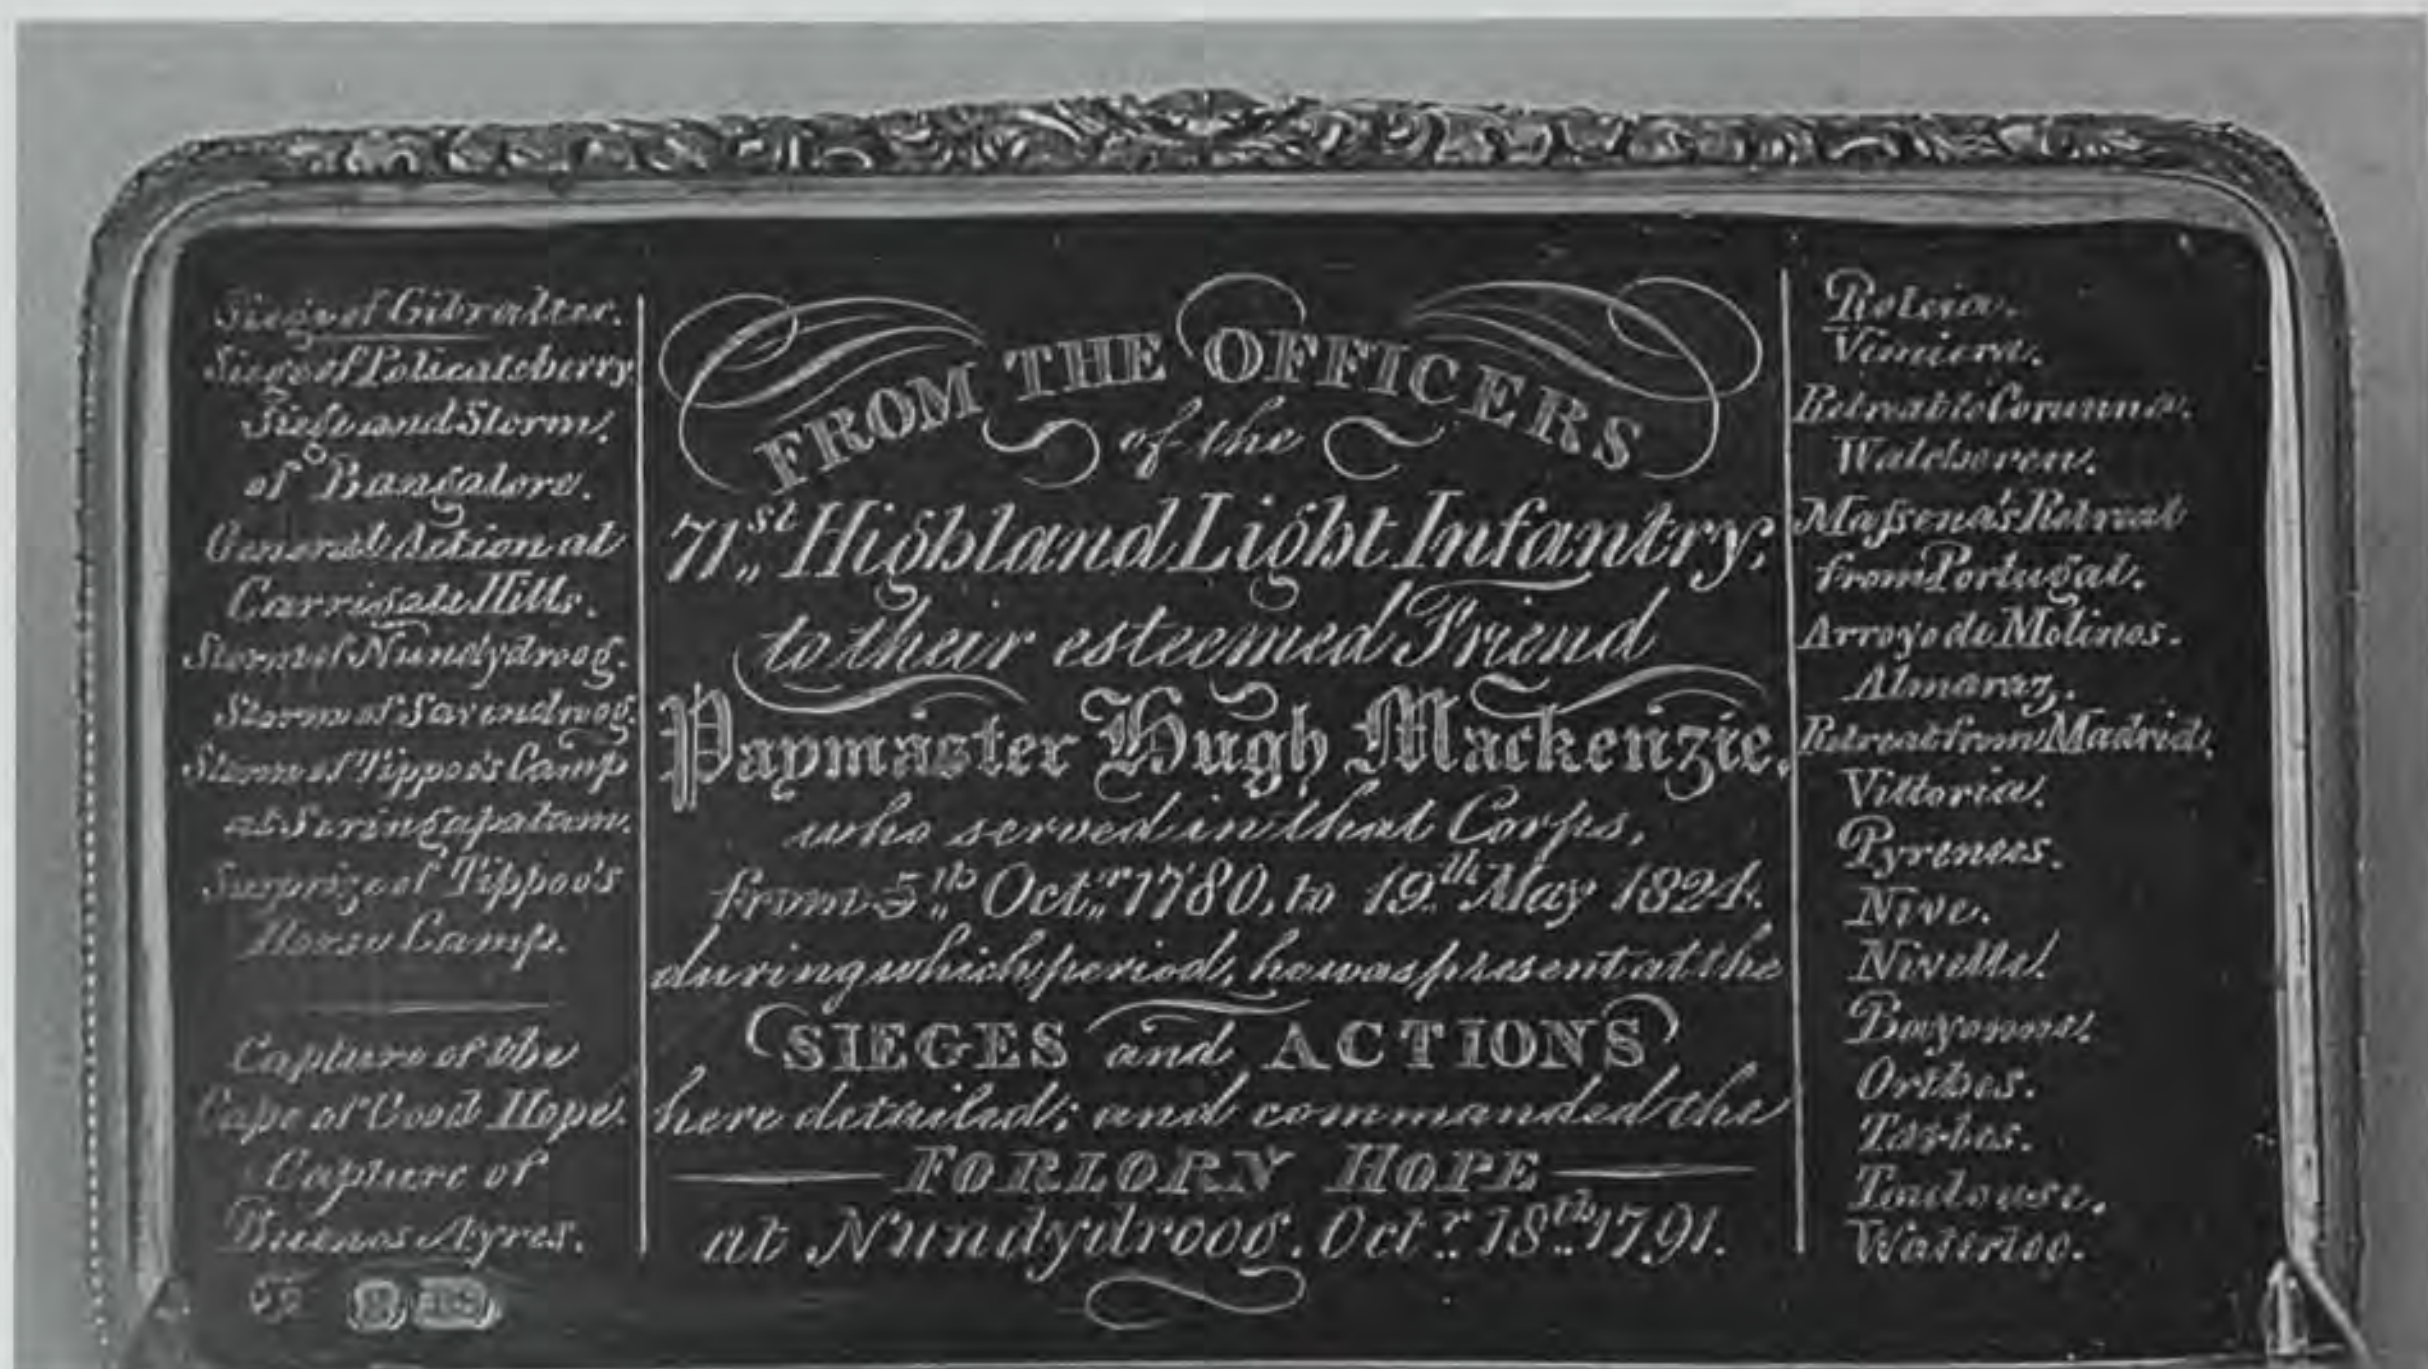 Siege of Gibralter.
Siege of Policatcherry
Siege and Storm
of Bangalore.
General Action at
Carrigatt Hills.
Storm of Nundydroog.
Storm of Savendroog.
Storm of Tippoo's Camp
at Seringapatam.
Surprize of Tippoo's
Horse Camp.
Capture of the
Cape of Good Hope.
Capture of
Buenos Ayres.
FROM THE OFFICERS
of the
71st Highland Light Infantry;
to their esteemed Friend
Paymaster Hugh Mackenzie,
who served in that Corps,
from 5th Octr 1780, to 19th May 1824.
during which period, he was present at the
SIEGES and ACTIONS
here detailed; and commanded the
FORLORN HOPE
at Nundydroog. Octr 18th 1791.
Roleia.
Vimiera.
Retreat to Corunna.
Walcheren.
Massena's Retreat
from Portugal.
Arroyo de Molinos.
Almaraz.
Retreat from Madrid.
Vittoria.
Pyrenees.
Nive.
Nivelle.
Bayonne.
Orthes.
Tarbes.
Toulouse.
Waterloo.